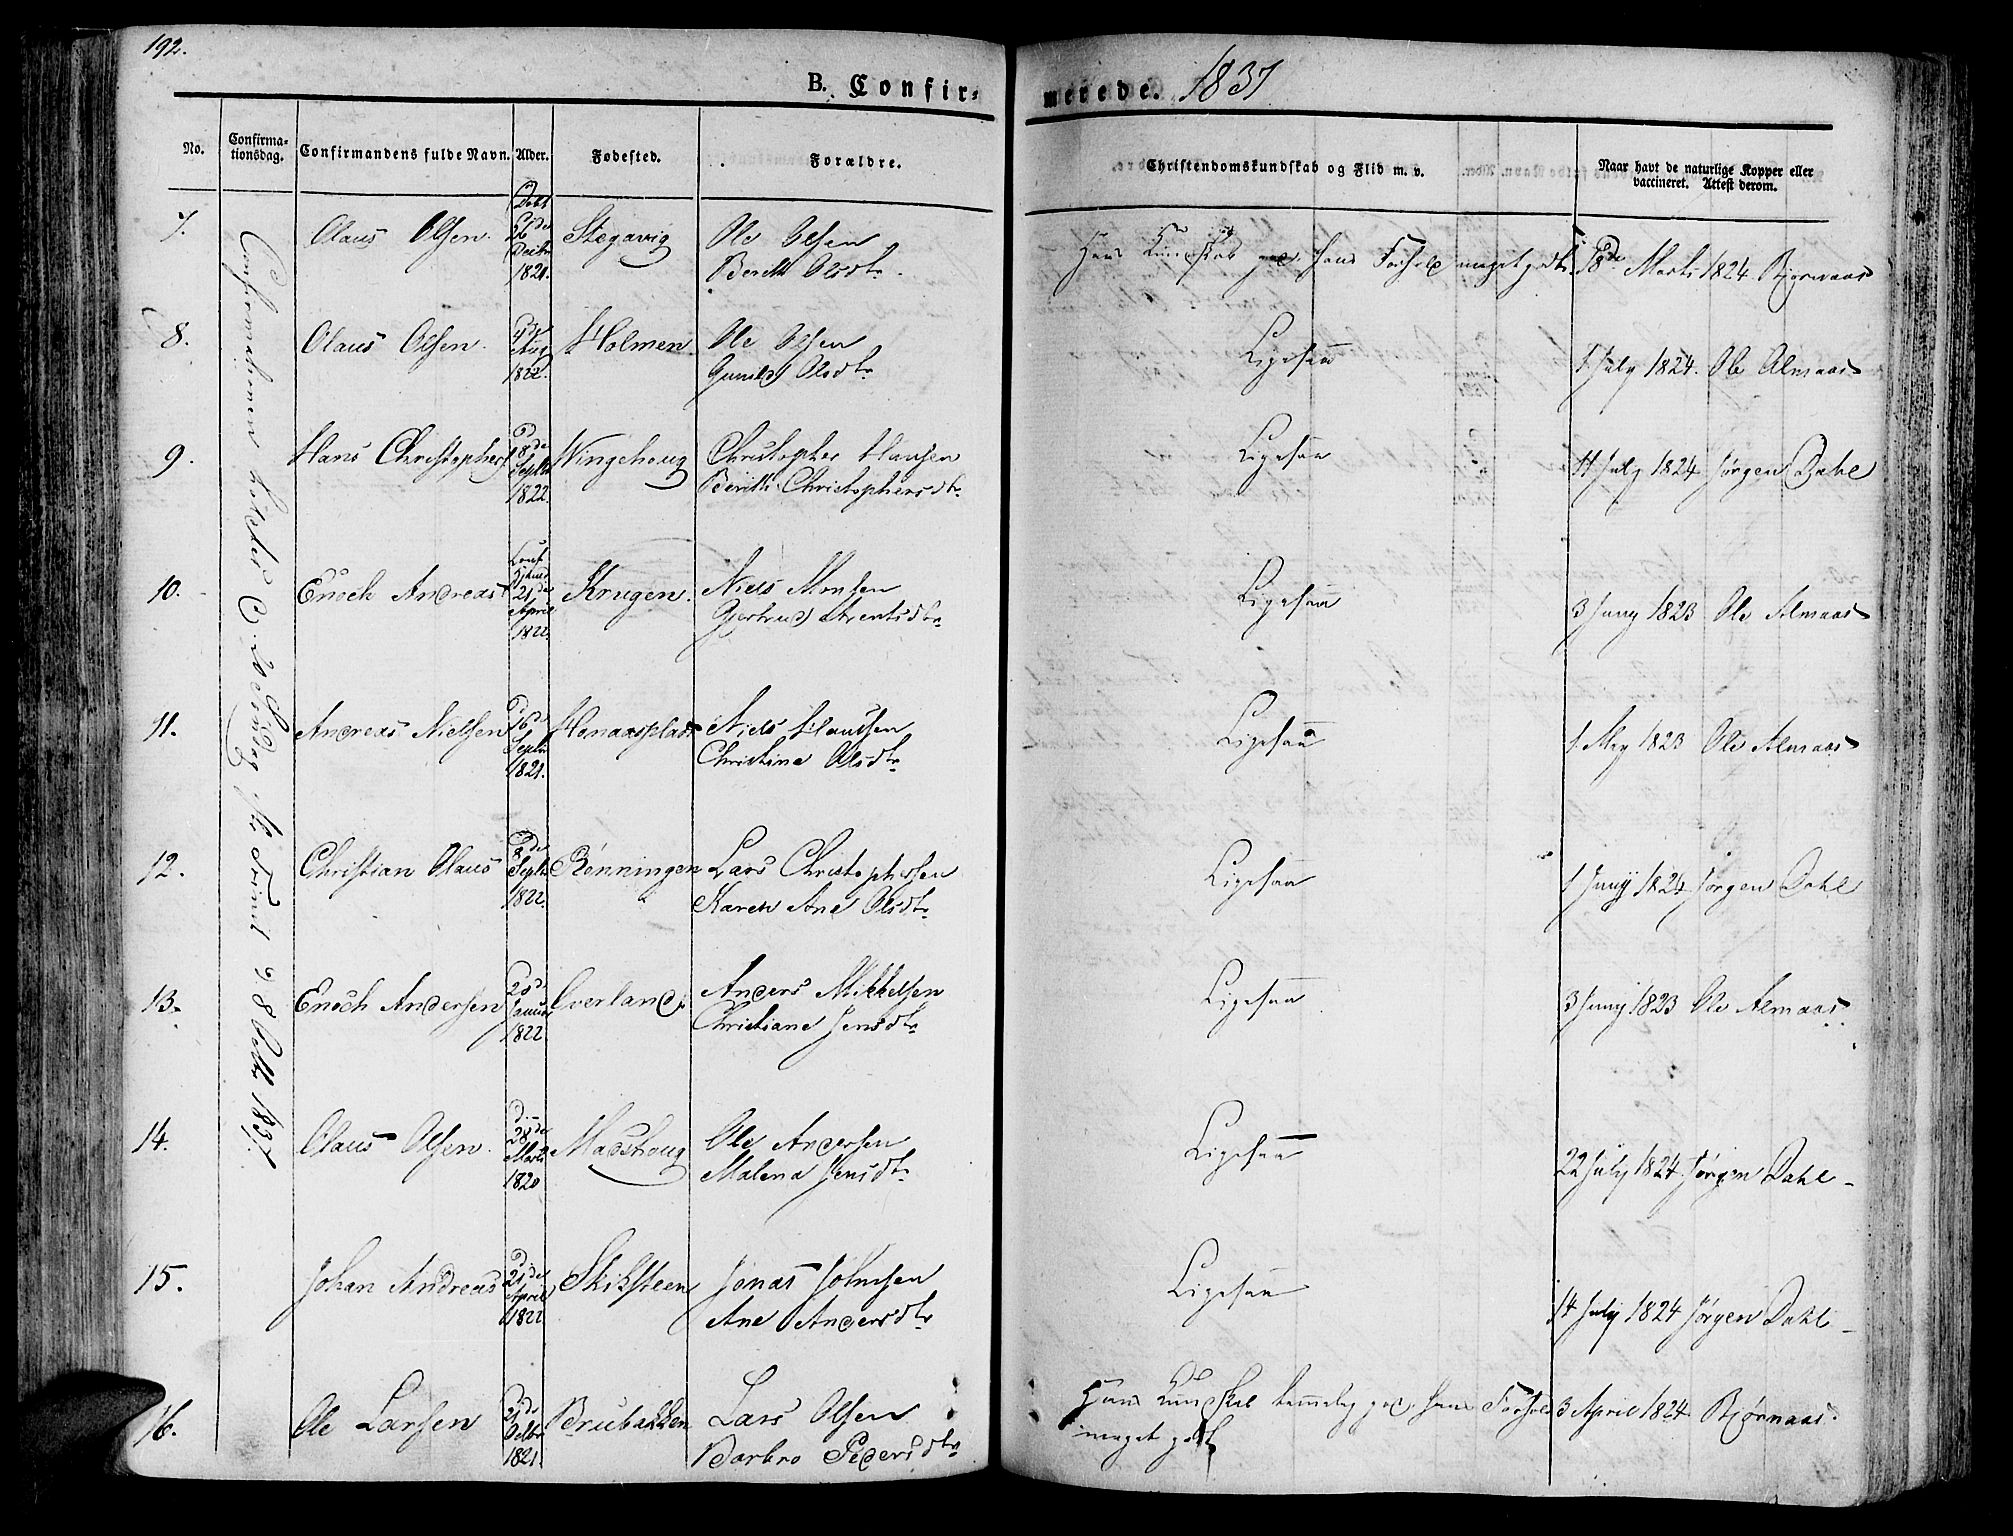 192.
B. Confir-
merede. 1837
No.
Confirma-
tionsdag.
Confirmandens fulde Navn.
Alder.
Fødested.
Forældre.
Christendomskundskab og Flid m. v.
Naar havt de naturlige Kopper eller
vaccineret. Attest derom.
Confirmationen holdet 20 Søndag Trinit 8 Octbr 1837.
7. Olaus Olsen. Døbt 26de Decbr 1821. Stegavig Ole Olsen
Berith Olsdtr.
Hans Kundskab god, hans Forhold meget godt. 18de Marts 1824 Bjørnaas
8. Olaus Olsen. Aug 1822. Holmen. Ole Olsen
Gunild Olsdtr
Ligesaa 1 July 1824. Ole Almaas
9. Hans Christophers D 8de Septbr 1822. Wingehoug Christopher Hansen
Berith Christophersdtr.
Ligesaa 11 July 1824 Jørgen Dahl
10. Enoch Andreas 21de April 1822. Krugen. Niels Monsen
Gjertrud Arentsdtr
Ligesaa 3 Juny 1823 Ole Almaas
11. Andreas Nielsen D 16de Septbr 1821. Honaasplads Niels Knudsen
Christine Olsdtr
Ligesaa 1 May 1823 Ole Almaas
12. Christian Olaus D 8de Septbr 1822. Rønningen Lars Christophersen
Karen Ane Olsdtr
Ligesaa 1 Juny 1824 Jørgen Dahl
13. Enoch Andersen D 20de Januar 1822 Overland Anders Mikkelsen
Christiane Jensdtr
Ligesaa 3 Juny 1823 Ole Almaas
14. Olaus Olsen. D 28de Marts 1820 Madshoug Ole Andersen
Malena Jensdtr
Ligesaa 22 July 1824. Jørgen Dahl
15. Johan Andreas D 21de April 1822 Skiksteen Jonas Johnsen
Ane Andersdtr
Ligesaa 14 July 1824 Jørgen Dahl
16. Ole Larsen Octbr 1821. Brubakken Lars Olsen
Barbro Pedersdtr
Hans Kundskab temmelig god, hans Forhold 3 April 1824. Bjørnaas.
meget godt